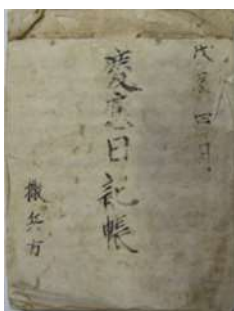 戊辰 四月
慶應日記帳
撒兵方